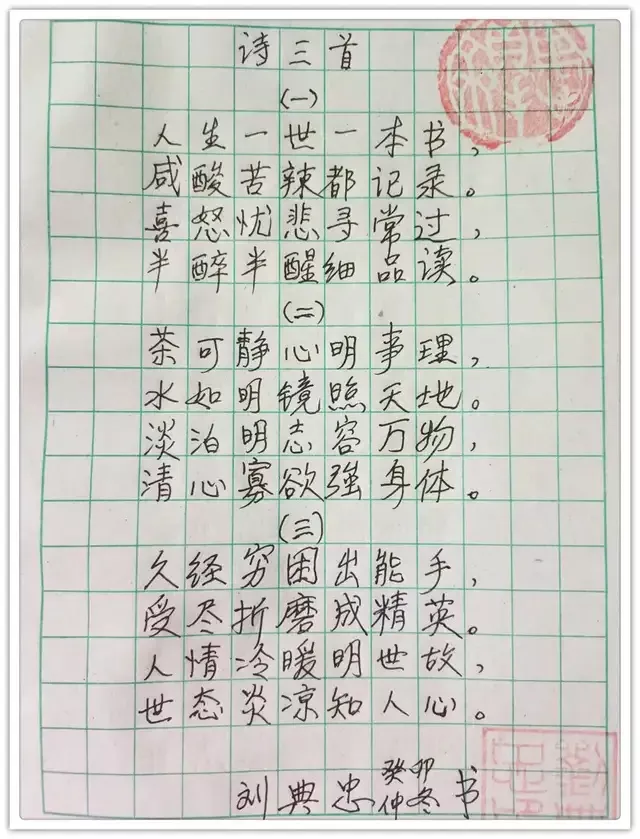 诗三首
(一)
人生一世一本书,
咸酸苦辣都记录。
喜怒忧悲寻常过,
半醉半醒细品读。
(二)
茶可静心明事理,
水如明镜照天地。
淡泊明志容万物,
清心寡欲强身体。
(三)
久经穷困出能手,
受尽折磨成精英。
人情冷暖明世故,
世态炎凉知人心。
刘典忠癸卯仲冬书